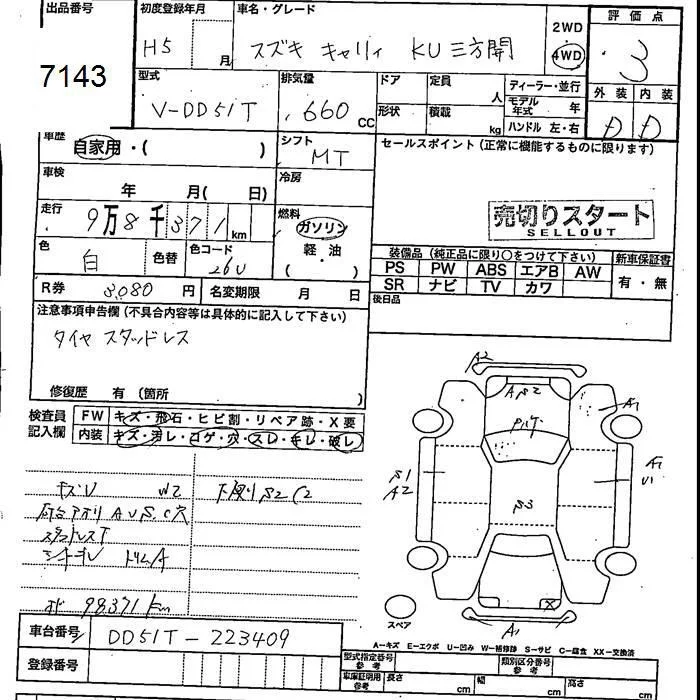 出品番号 初度登録年月 車名・グレード 2WD 評価点
7143 H5 月 スズキ キャリィ KU 三方開 4WD 3
型式 排気量 ドア 定員 人 ディーラー・並行 外装 内装
V-DD51T 660 CC 形状 積載 kg モデル年式 年 D D
ハンドル 左・右
車歴 自家用・( ) シフト MT セールスポイント(正常に機能するものに限ります)
車検 年 月( 日) 冷房
走行 9万8千371km 燃料 ガソリン 売切りスタート
軽・油 SELLOUT
( )
色 白 色替 色コード 26U 装備品(純正品に限り○をつけて下さい) 新車保証書
PS PW ABS エアB AW 有・無
SR ナビ TV カワ
R券 8,080 円 名変期限 月 日 後日品
注意事項申告欄(不具合内容等は具体的に記入して下さい)
タイヤ スタッドレス
修復歴 有(箇所 )
検査員 FW キズ・飛石・ヒビ割・リペア跡・X要
記入欄 内装 キズ・汚レ・コゲ・穴・スレ・キレ・破レ
キズU W2 下廻りS2C2
荷台アオリ A U S C穴
スタッドレスT
シートキレ ドリムA
メーター 98371km
車台番号 DD51T-223409
登録番号
A2
AS2
A1
S1
A2
S3
A1
U1
X
A1
スペア
A-キズ E-エクボ U-凹み W-補修跡 S-サビ C-腐食 XX-交換済
型式指定番号 参考 類別区分番号 参考
車庫証明用 参考 長さ cm 幅 cm 高さ cm